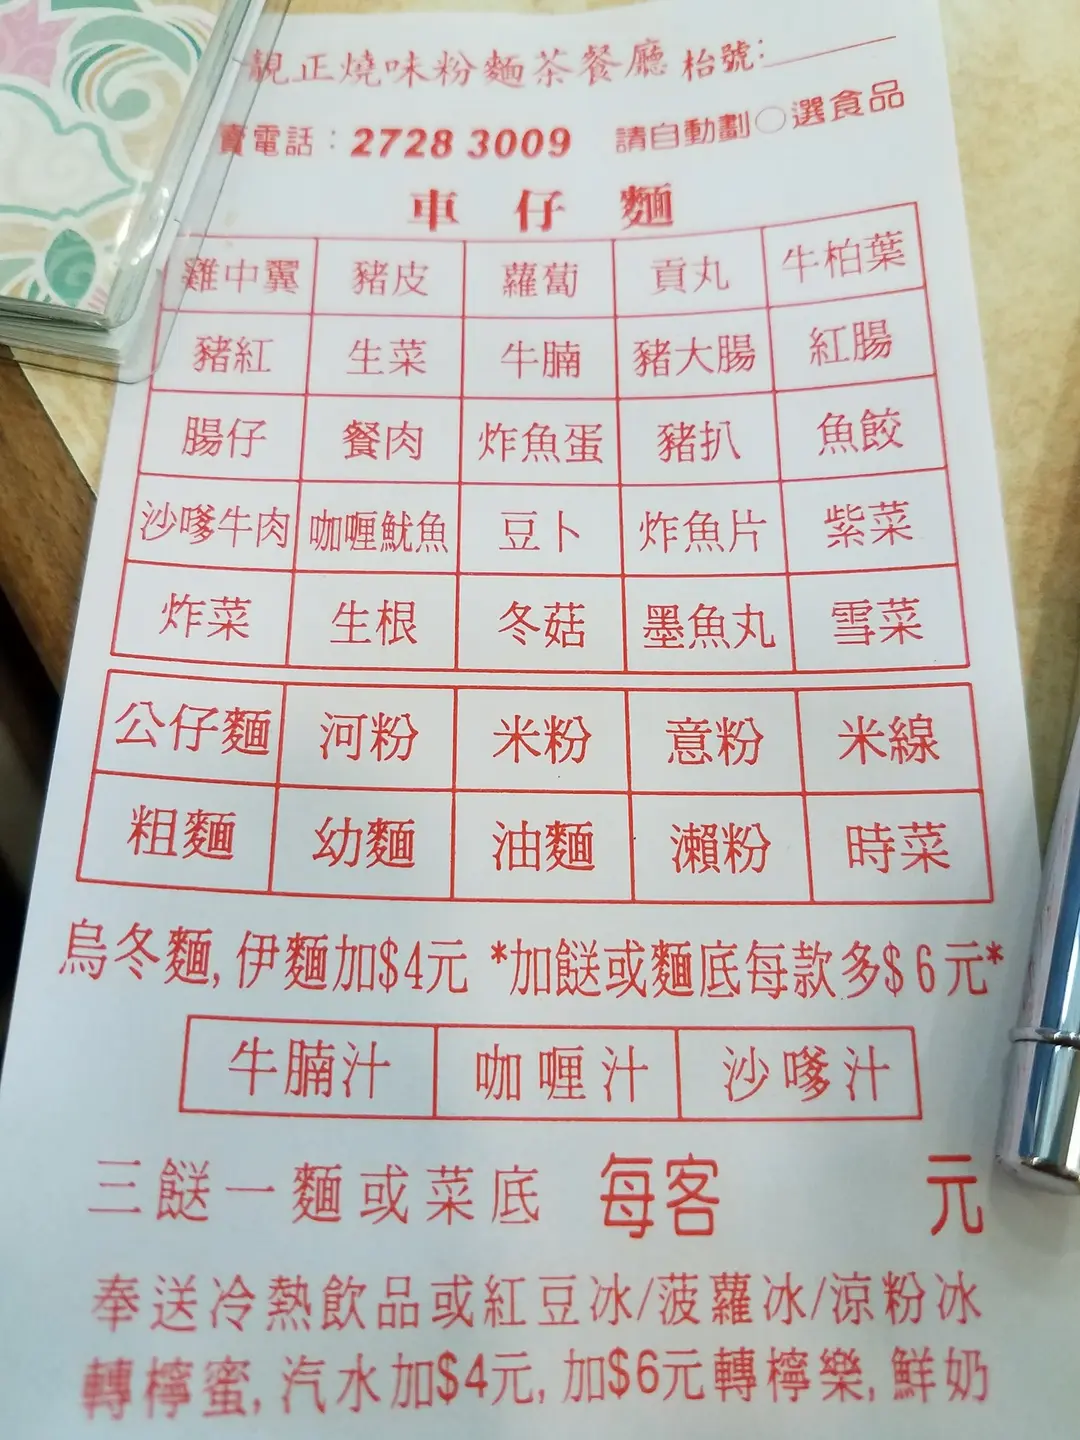 靚正燒味粉麵茶餐廳 枱號:
賣電話：2728 3009 請自動劃○選食品
車仔麵
雞中翼 豬皮 蘿蔔 貢丸 牛柏葉
豬紅 生菜 牛腩 豬大腸 紅腸
腸仔 餐肉 炸魚蛋 豬扒 魚餃
沙嗲牛肉 咖喱魷魚 豆卜 炸魚片 紫菜
炸菜 生根 冬菇 墨魚丸 雪菜
公仔麵 河粉 米粉 意粉 米線
粗麵 幼麵 油麵 瀨粉 時菜
烏冬麵, 伊麵加$4元 *加餸或麵底每款多$6元*
牛腩汁 咖喱汁 沙嗲汁
三餸一麵或菜底 每客 元
奉送冷熱飲品或紅豆冰/菠蘿冰/涼粉冰
轉檸蜜, 汽水加$4元, 加$6元轉檸樂, 鮮奶